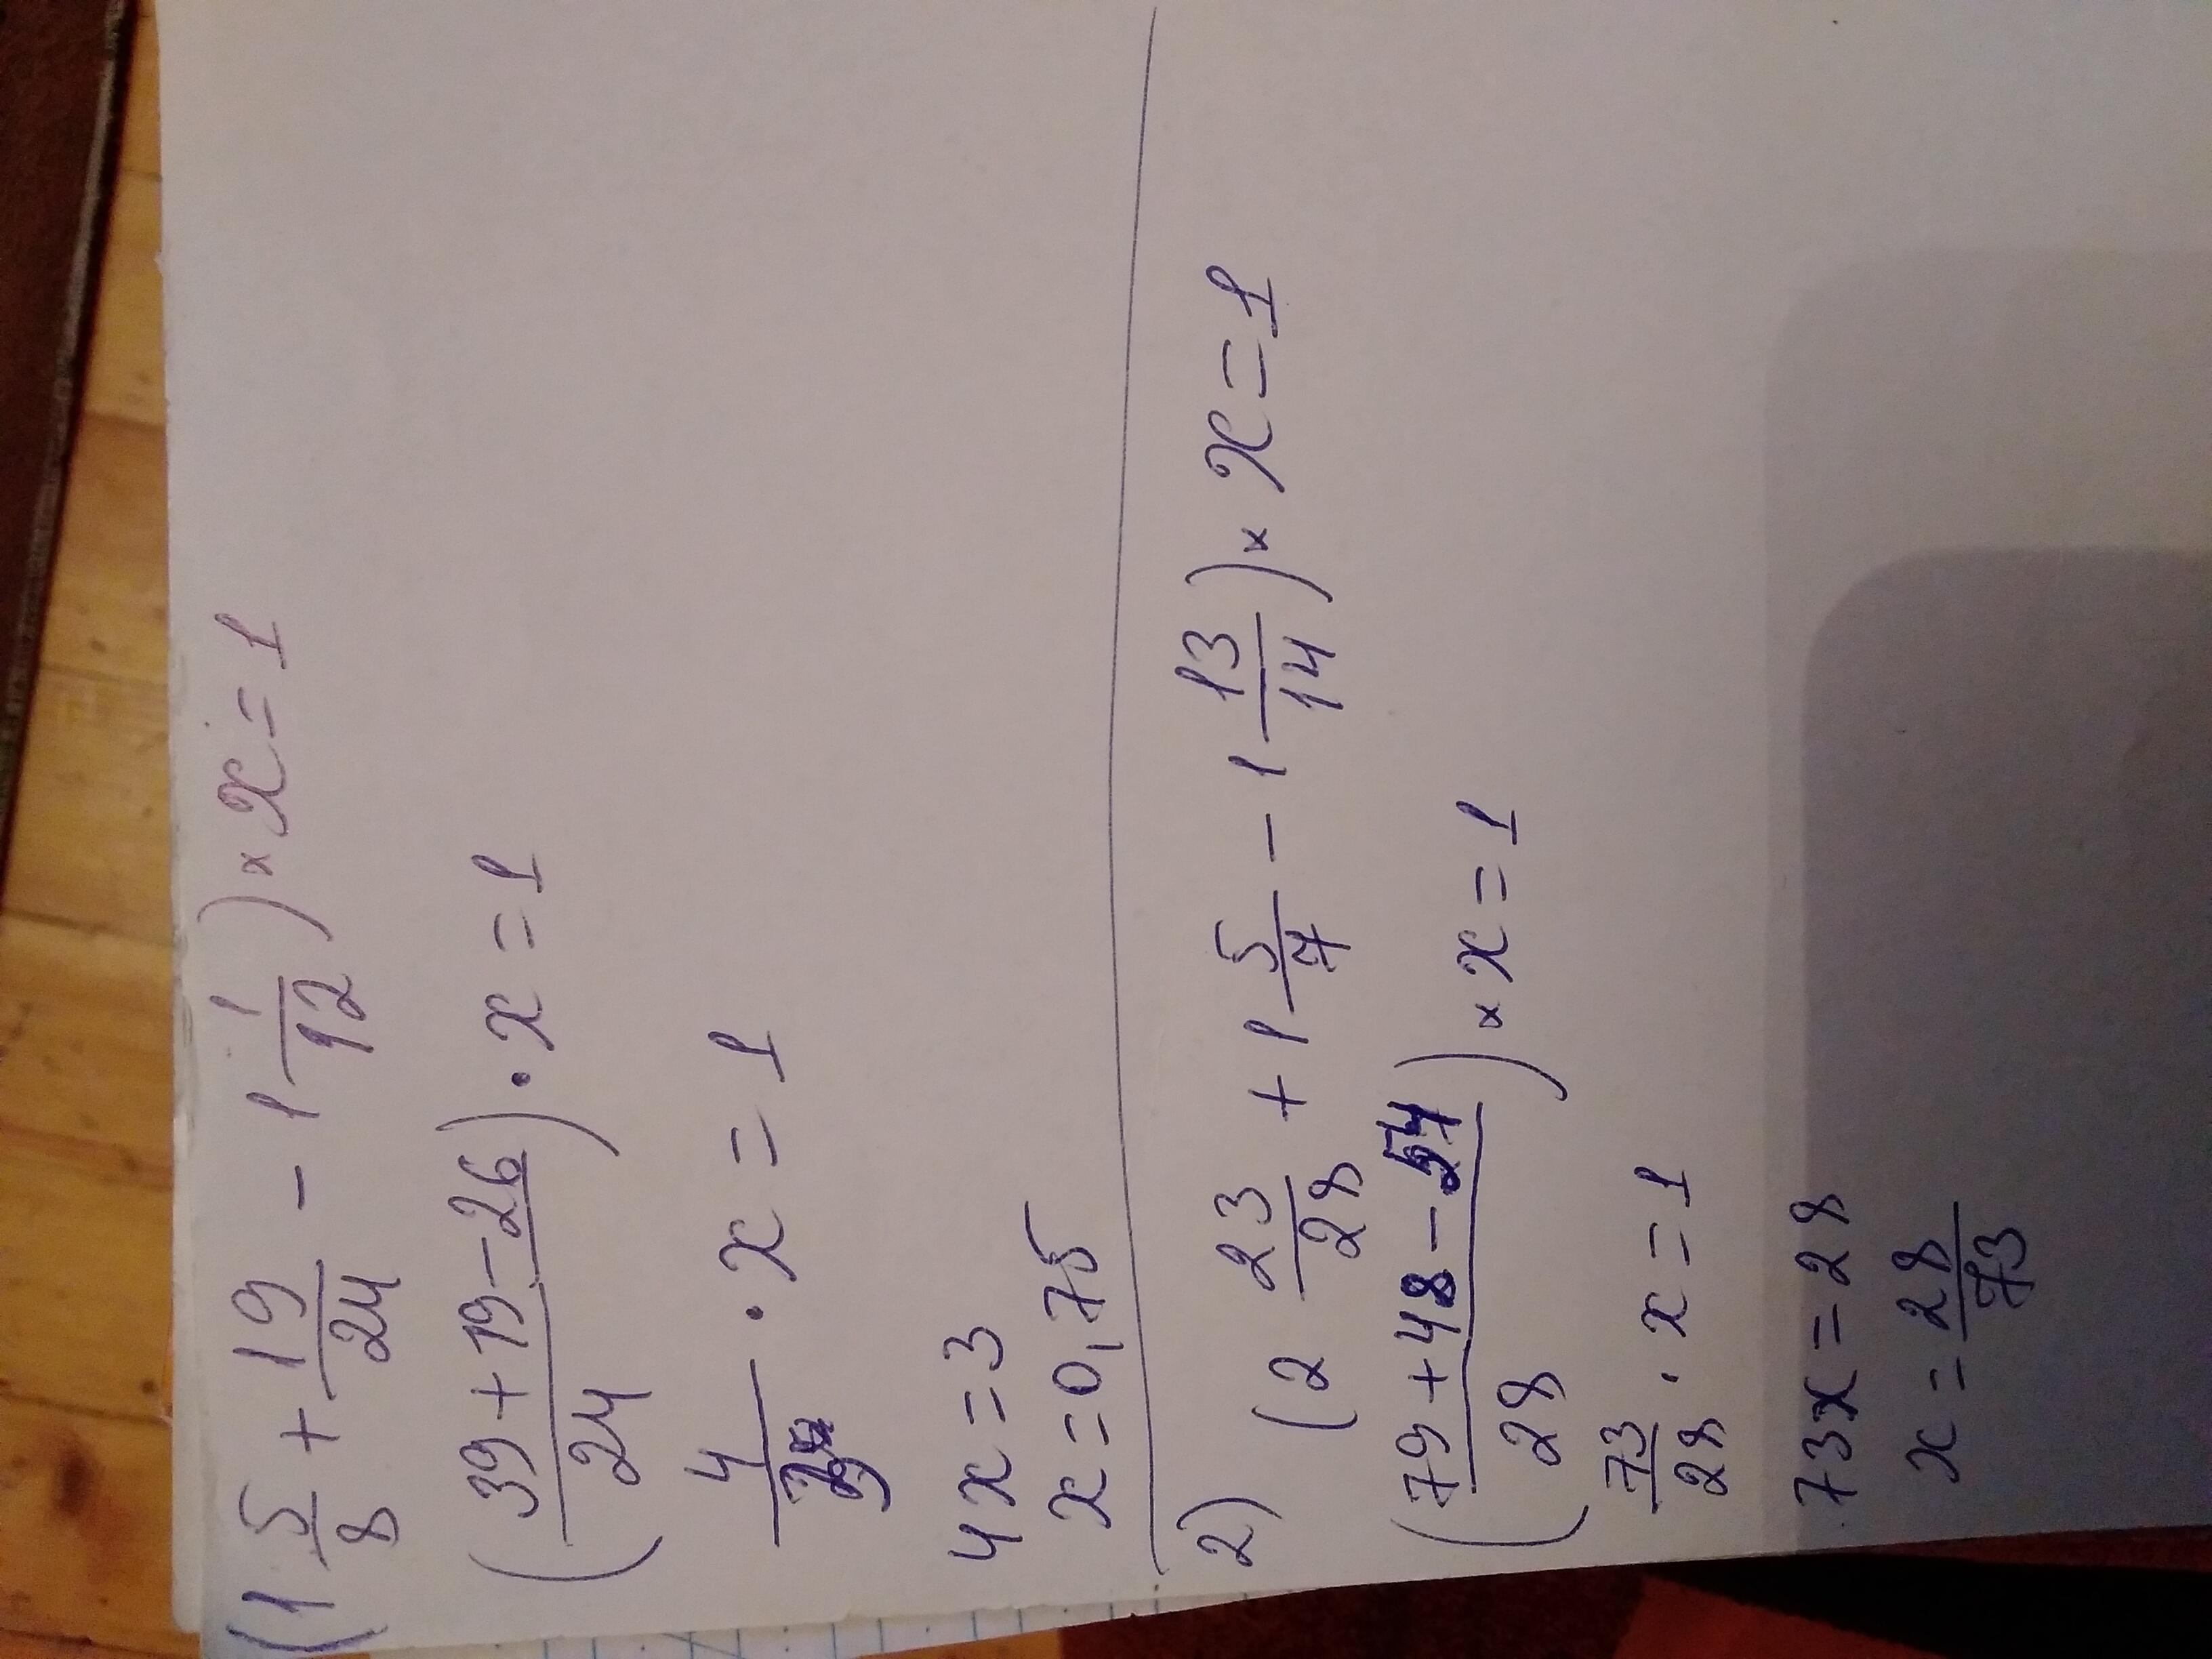 (1 5/8 + 19/24 - 1 1/12) × x = 1
((39 + 19 - 26)/24) · x = 1
4/3 · x = 1
4x = 3
x = 0,75
2) (2 23/28 + 1 5/7 - 1 13/14) × x = 1
((79 + 48 - 54)/28) × x = 1
73/28 · x = 1
73x = 28
x = 28/73